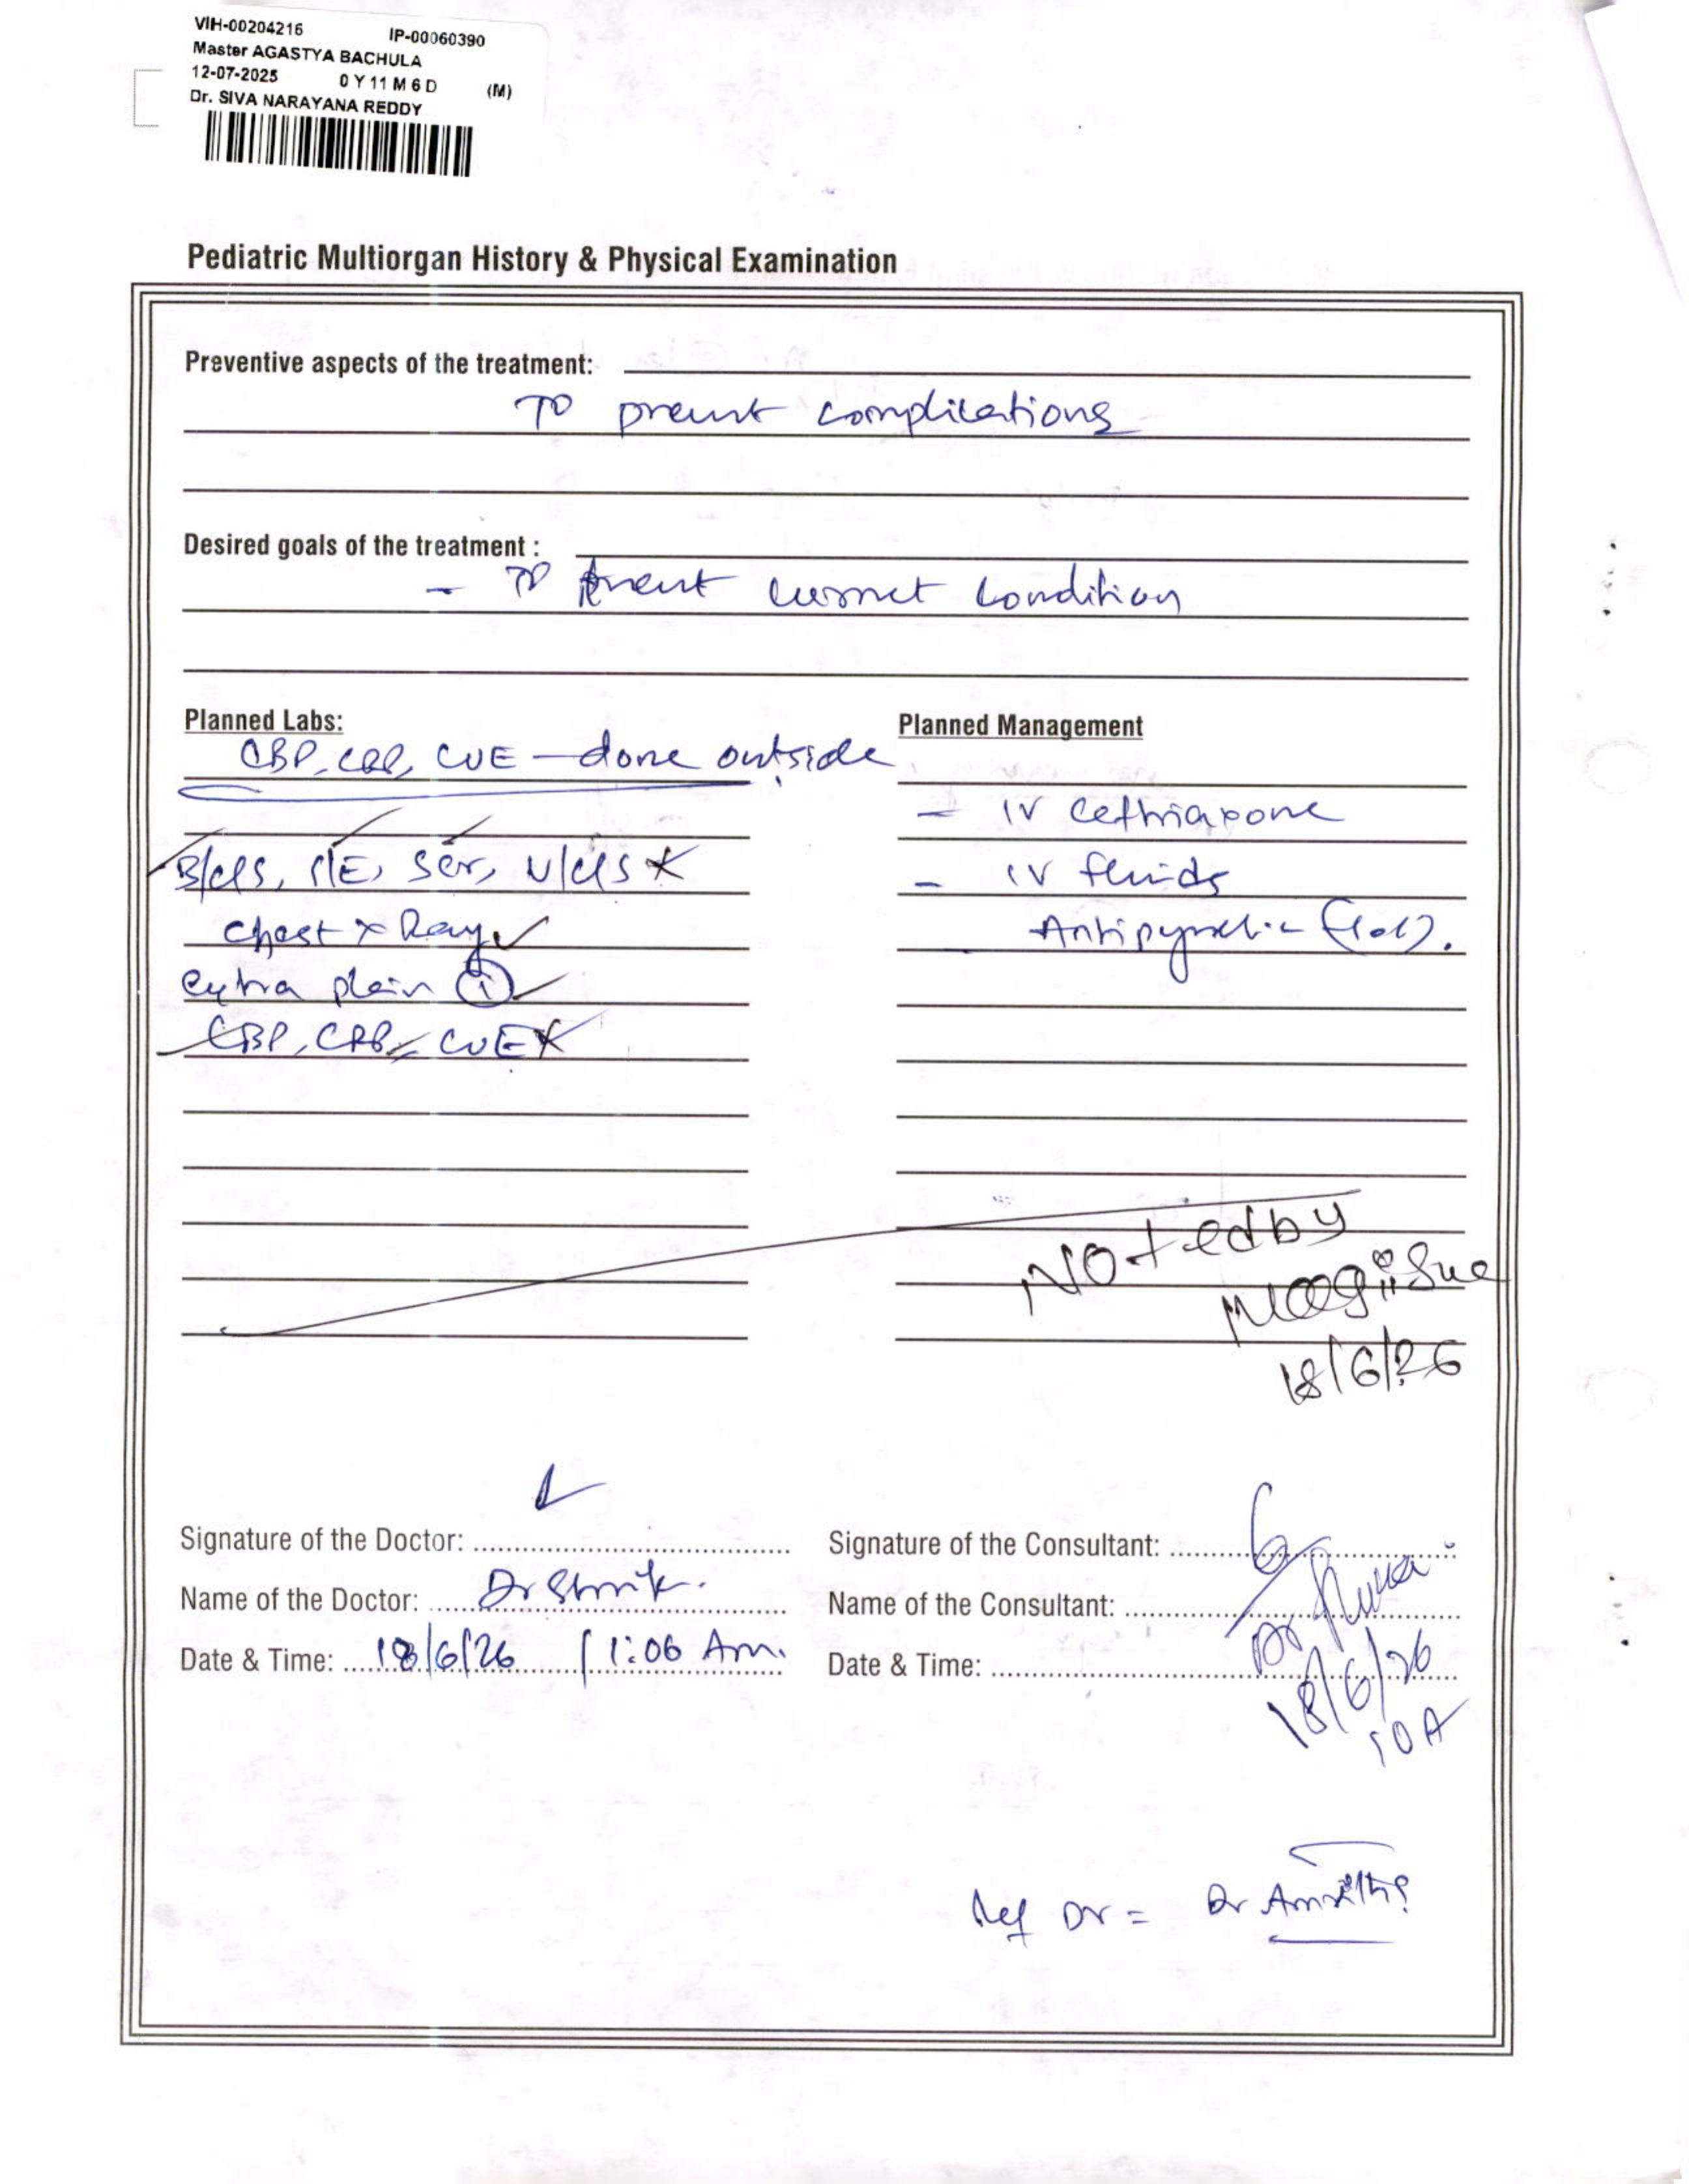 VIH-00204216 IP-00060390
Master AGASTYA BACHULA
12-07-2025 0 Y 11 M 6 D (M)
Dr. SIVA NARAYANA REDDY
Pediatric Multiorgan History & Physical Examination
Preventive aspects of the treatment:
To prevent complications
Desired goals of the treatment :
- To treat current condition
Planned Labs:
CBP, CRP, CUE - done outside
B/c/s, S/E, Scr, U/c/s
Chest x Ray
extra plain 1
CBP, CRP, CUE
Planned Management
- IV Ceftriaxone
- IV fluids
Antipyretic
Noted by
18/6/26
Signature of the Doctor:
Name of the Doctor: Dr
Date & Time: 18/6/26 1:06 Am.
Signature of the Consultant:
Name of the Consultant: Dr
Date & Time: 18/6/26
10 A
Ref Dr = Dr